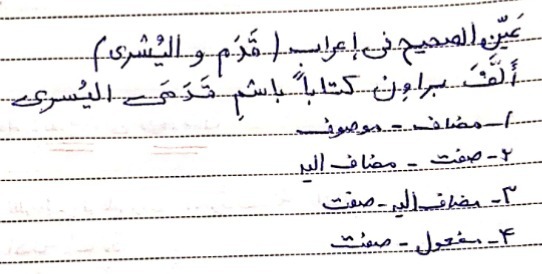 عَيِّنِ الصحيح في إعراب (قَدَم و اليُسْرى)
أَلَّفَ براون كتاباً باسْمِ قَدَمي اليُسرى
۱- مضاف - موصوف
۲- صفت - مضاف الیه
۳- مضاف الیه - صفت
۴- مفعول - صفت